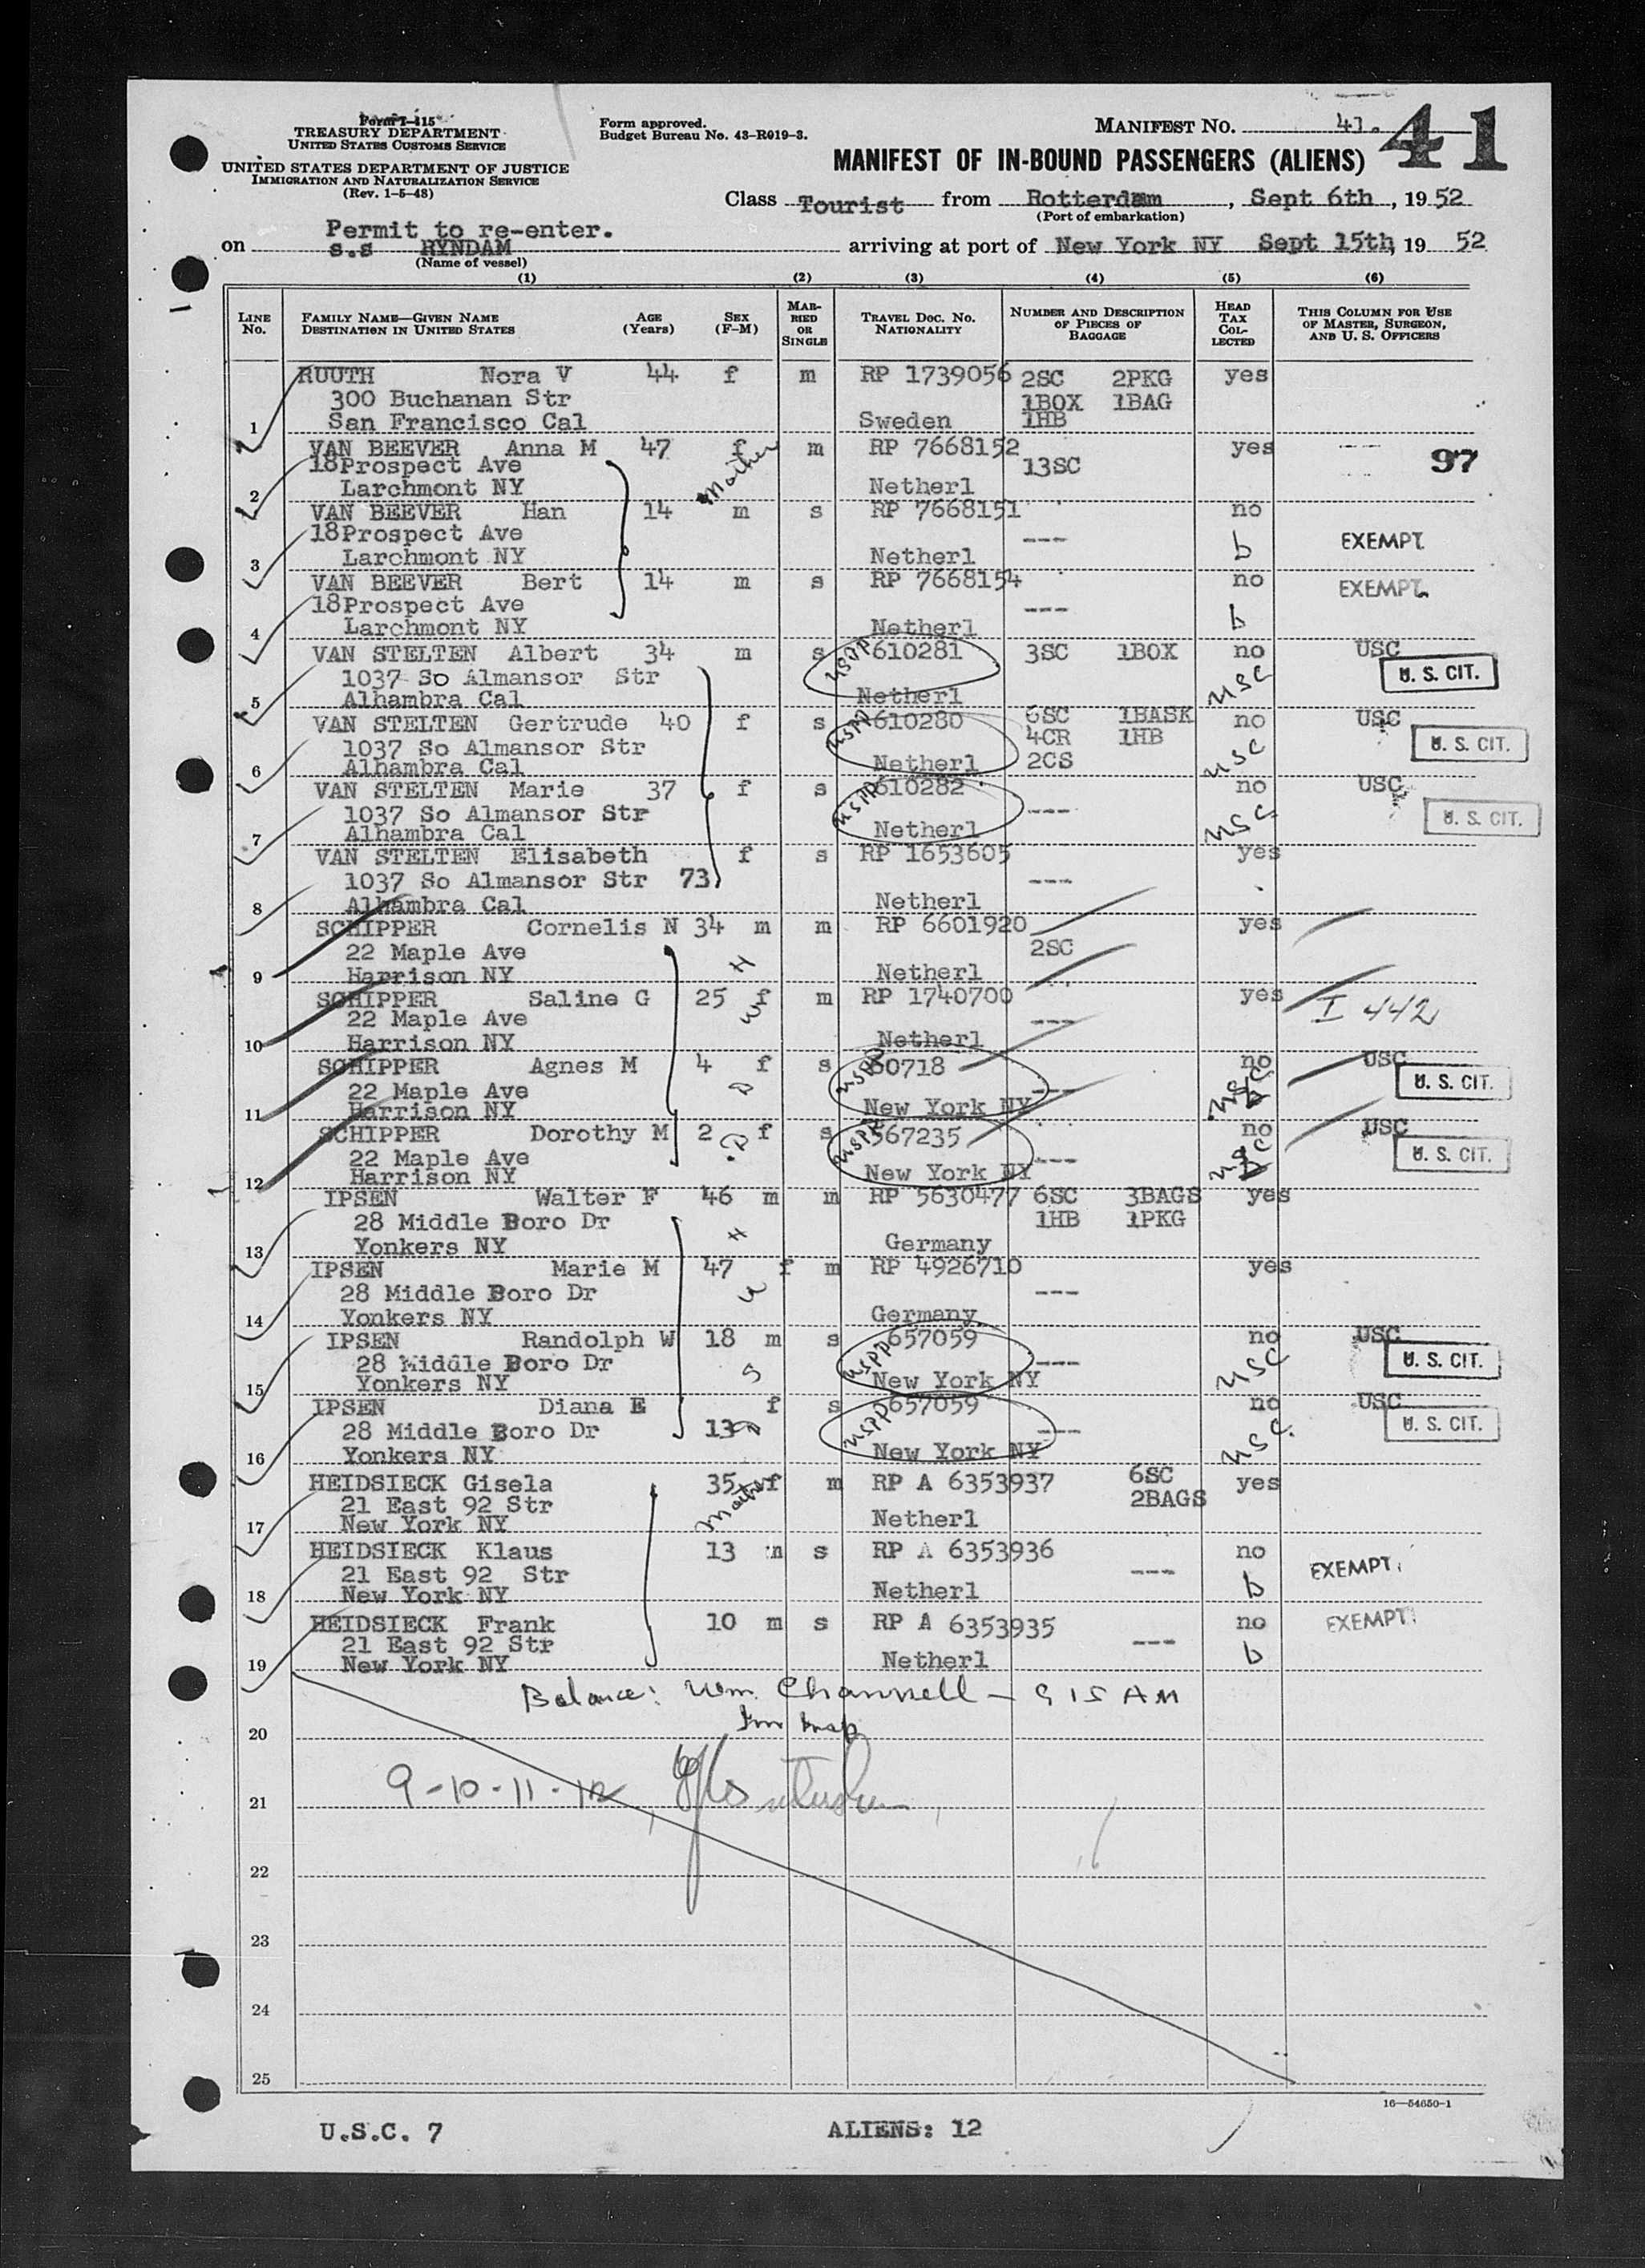 Form I-415
TREASURY DEPARTMENT
UNITED STATES CUSTOMS SERVICE
UNITED STATES DEPARTMENT OF JUSTICE
IMMIGRATION AND NATURALIZATION SERVICE
(Rev. 1-5-48)
Form approved.
Budget Bureau No. 43-R019-3.
MANIFEST NO. 41. 41
MANIFEST OF IN-BOUND PASSENGERS (ALIENS)
Class Tourist from Rotterdam, Sept 6th, 19 52
(Port of embarkation)
Permit to re-enter.
on s.s RYNDAM arriving at port of New York NY Sept 15th, 19 52
(Name of vessel)
(1) (2) (3) (4) (5) (6)
LINE NO. FAMILY NAME—GIVEN NAME DESTINATION IN UNITED STATES AGE (Years) SEX (F-M) MARRIED OR SINGLE TRAVEL DOC. NO. NATIONALITY NUMBER AND DESCRIPTION OF PIECES OF BAGGAGE HEAD TAX COLLECTED THIS COLUMN FOR USE OF MASTER, SURGEON, AND U. S. OFFICERS
RUUTH Nora V 44 f m RP 1739056 2SC 2PKG yes
300 Buchanan Str 1BOX 1BAG
1 San Francisco Cal Sweden 1HB
VAN BEEVER Anna M 47 f Mother m RP 7668152 yes
18Prospect Ave 13SC 97
2 Larchmont NY Netherl
VAN BEEVER Han 14 m s RP 7668151 no
18Prospect Ave --- b EXEMPT.
3 Larchmont NY Netherl
VAN BEEVER Bert 14 m s RP 7668154 no EXEMPT.
18Prospect Ave --- b
4 Larchmont NY Netherl
VAN STELTEN Albert 34 m s USPP 610281 3SC 1BOX no USC
1037 So Almansor Str USC U. S. CIT.
5 Alhambra Cal Netherl
VAN STELTEN Gertrude 40 f s USPP 610280 6SC 1BASK no USC
1037 So Almansor Str 4CR 1HB USC U. S. CIT.
6 Alhambra Cal Netherl 2CS
VAN STELTEN Marie 37 f s USPP 610282 no USC
1037 So Almansor Str --- USC U. S. CIT.
7 Alhambra Cal Netherl
VAN STELTEN Elisabeth f s RP 1653605 yes
1037 So Almansor Str 73 ---
8 Alhambra Cal Netherl
SCHIPPER Cornelis N 34 m m RP 6601920 yes
22 Maple Ave H 2SC
9 Harrison NY Netherl
SCHIPPER Saline G 25 f m RP 1740700 yes
22 Maple Ave W --- I 442
10 Harrison NY Netherl
SCHIPPER Agnes M 4 f s USPP 60718 no USC
22 Maple Ave D --- USC U. S. CIT.
11 Harrison NY New York NY
SCHIPPER Dorothy M 2 f s USPP 567235 no USC
22 Maple Ave D --- USC U. S. CIT.
12 Harrison NY New York NY
IPSEN Walter F 46 m m RP 5630477 6SC 3BAGS yes
28 Middle Boro Dr H 1HB 1PKG
13 Yonkers NY Germany
IPSEN Marie M 47 f m RP 4926710 yes
28 Middle Boro Dr W ---
14 Yonkers NY Germany
IPSEN Randolph W 18 m s USPP 657059 no USC
28 Middle Boro Dr S --- USC U. S. CIT.
15 Yonkers NY New York NY
IPSEN Diana E f s USPP 657059 no USC
28 Middle Boro Dr 13 D --- USC. U. S. CIT.
16 Yonkers NY New York NY
HEIDSIECK Gisela 35 f Mother m RP A 6353937 6SC yes
21 East 92 Str 2BAGS
17 New York NY Netherl
HEIDSIECK Klaus 13 m s RP A 6353936 no
21 East 92 Str --- b EXEMPT.
18 New York NY Netherl
HEIDSIECK Frank 10 m s RP A 6353935 no EXEMPT.
21 East 92 Str --- b
19 New York NY Netherl
Balance: Wm. Channell — 9 15 AM
20 Imm Insp
21 9-10-11-12
22
23
24
25
16—54650-1
U.S.C. 7 ALIENS: 12